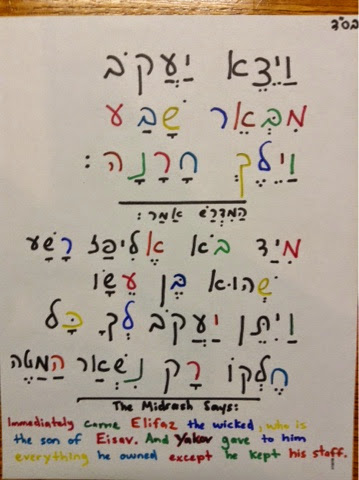 בס"ד
וַיֵּצֵא יַעֲקֹב
מִבְּאֵר שָׁבַע
וַיֵּלֶךְ חָרָנָה :
הַמִּדְרָשׁ אֹמֵר :
מִיַּד בֹּא אֱלִיפַז רָשָׁע
שֶׁהוּא בֶּן עֵשָׂו
וַיִּתֵּן יַעֲקֹב לְךָ כָּל
חֶלְקוֹ רַק נִשְׁאַר הַמַּטֶּה
The Midrash Says:
Immediately came Elifaz the wicked, who is
the son of Eisav. And Yakov gave to him
everything he owned except he kept his staff.